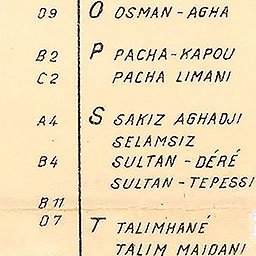 D9 O OSMAN-AGHA
B2 P PACHA-KAPOU
C2 PACHA LIMANI
A4 S SAKIZ AGHADJI
SELAMSIZ
B4 SULTAN-DÉRÉ
SULTAN-TEPESSI
B11
D7 T TALIMHANÉ
TALIM MAIDANI